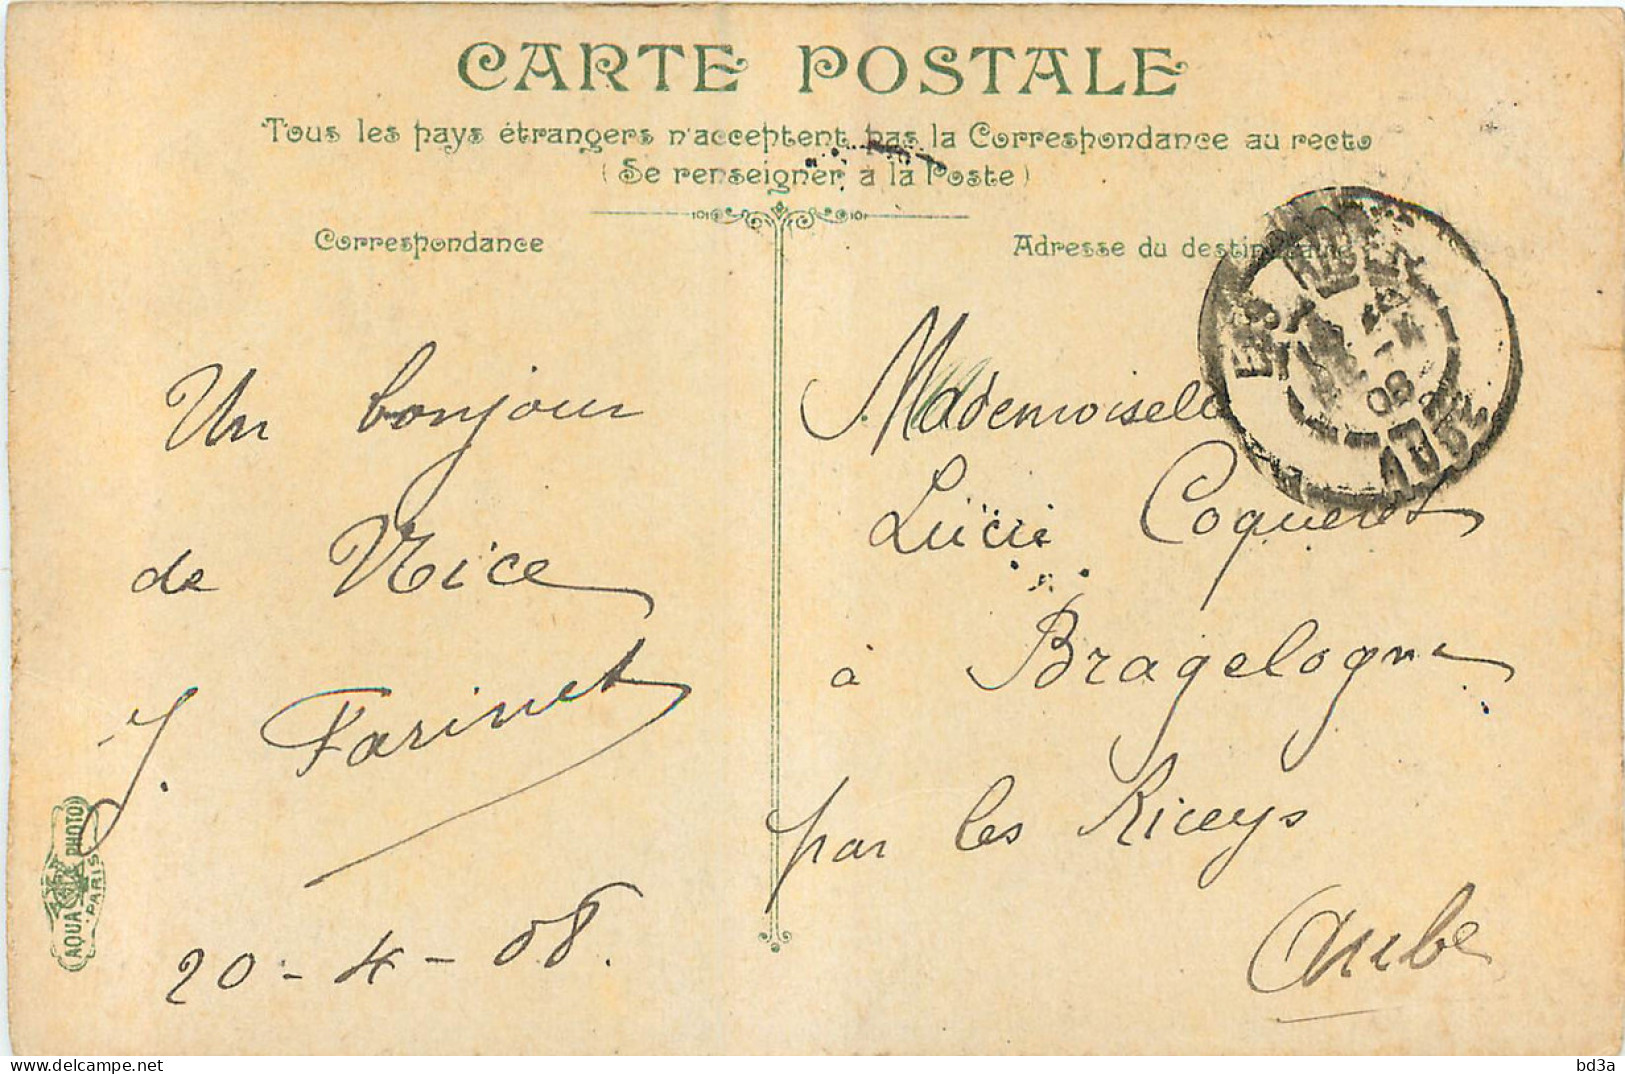 CARTE POSTALE
Tous les pays étrangers n'acceptent pas la Correspondance au recto
(Se renseigner à la Poste)
Correspondance
Un bonjour
de Nice
J. Farinet
20-4-08.
AQUA PHOTO
PARIS
Adresse du destinataire
LES RICEYS
08
AUBE
Mademoiselle
Lucie Coqueret
à Bragelogne
par les Riceys
Aube
delcampe.net
bd3a